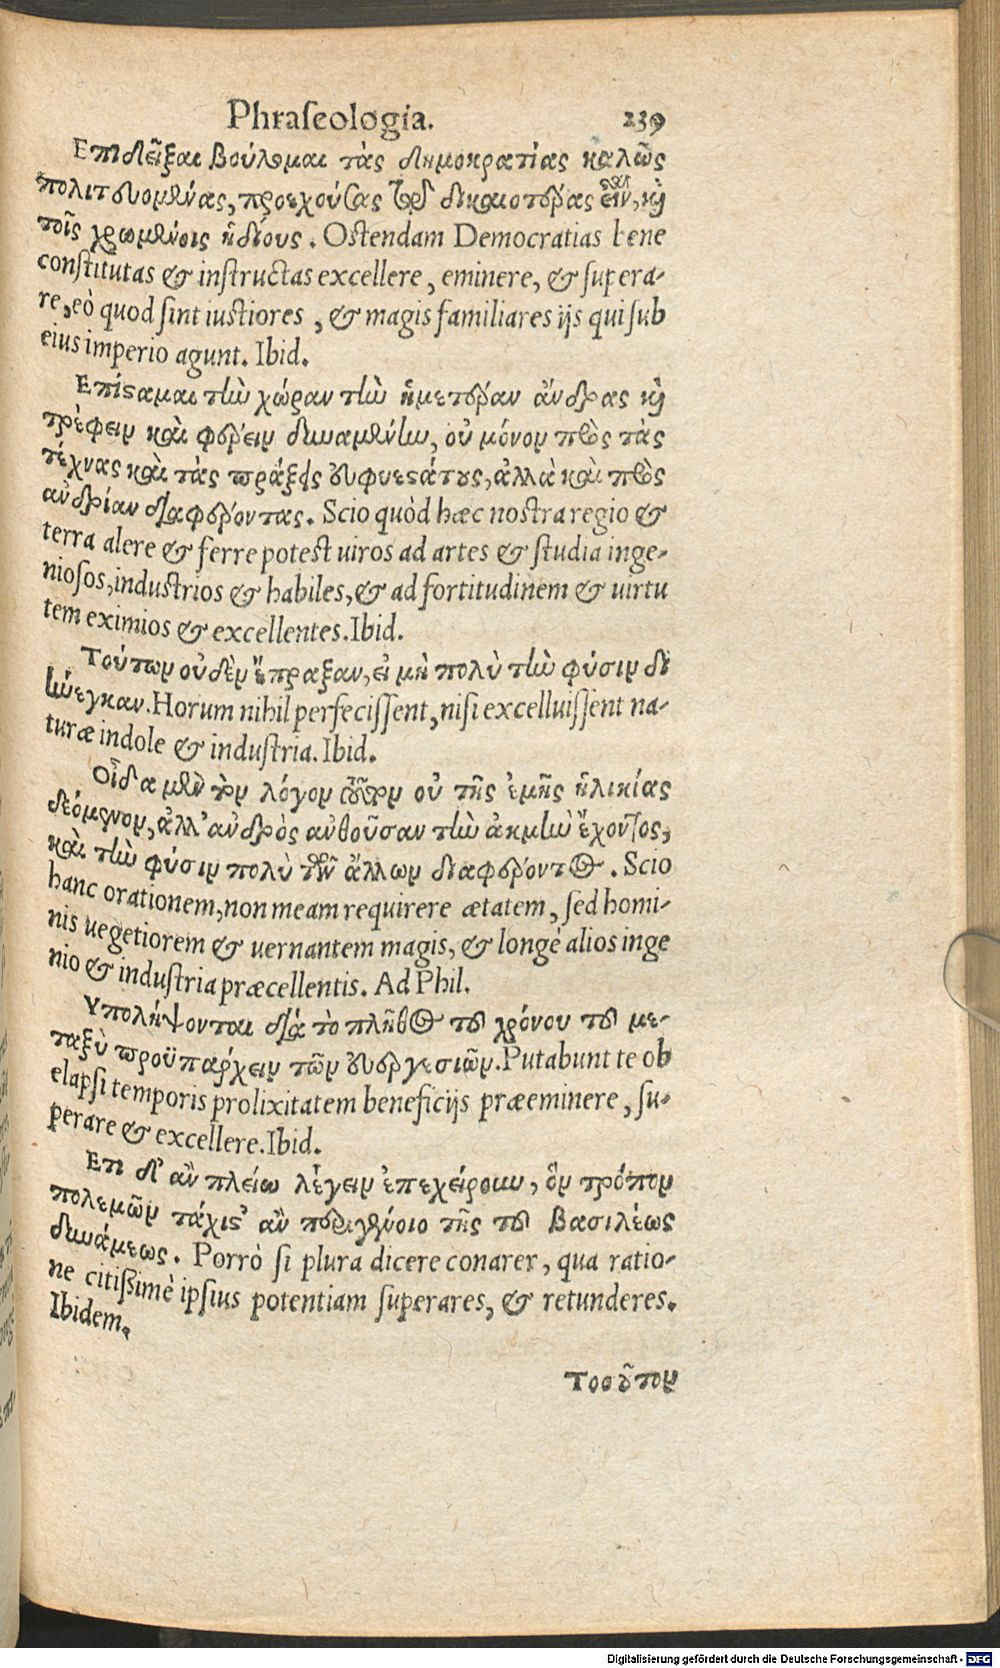 Phraſeologia. 239
Επιδεῖξαι βούλομαι τὰς δημοκρατίας καλῶς
πολιτευομένας, προεχούσας τῷ δικαιοτέρας εἶναι, καὶ
τοῖς χρωμένοις ἡδίους. Oſtendam Democratias bene
conſtitutas & inſtructas excellere, eminere, & ſupera-
re, eò quod ſint iuſtiores, & magis familiares ijs qui ſub
eius imperio agunt. Ibid.
Επίσαμαι τὴν χώραν τὴν ἡμετέραν ἄνδρας καὶ
τρέφειν καὶ φέρειν δυναμένην, οὐ μόνον πρὸς τὰς
τέχνας καὶ τὰς πράξεις εὐφυεστάτους, ἀλλὰ καὶ πρὸς
ανδρίαν διαφέροντας. Scio quòd hæc noſtra regio &
terra alere & ferre poteſt uiros ad artes & ſtudia inge-
nioſos, induſtrios & habiles, & ad fortitudinem & uirtu
tem eximios & excellentes. Ibid.
Τούτων οὐδὲν ἔπραξαν, εἰ μὴ πολὺ τὴν φύσιν δι
ήνεγκαν. Horum nihil perfeciſſent, niſi excelluiſſent na-
turæ indole & induſtria. Ibid.
Οἶδα μὲν τὸν λόγον τοῦτον οὐ τῆς ἐμῆς ἡλικίας
δεόμενον, ἀλλ' ανδρὸς ανθοῦσαν τὴν ἀκμὴν ἔχοντος,
καὶ τὴν φύσιν πολὺ τῶν ἄλλων διαφέροντος. Scio
hanc orationem, non meam requirere ætatem, ſed homi-
nis uegetiorem & uernantem magis, & longè alios inge
nio & induſtria præcellentis. Ad Phil.
Υπολήψονται διὰ τὸ πλῆθος τοῦ χρόνου τοῦ με-
ταξὺ προϋπαρχειν τῶν ευεργεσιῶν. Putabunt te ob
elapſi temporis prolixitatem beneficijs præeminere, ſu-
perare & excellere. Ibid.
Ετι δ' αν πλείω λέγειν ἐπεχείρουν, ὃν τρόπον
πολεμῶν τάχιστ' αν περιγένοιο τῆς τοῦ βασιλέως
δυνάμεως. Porrò ſi plura dicere conarer, qua ratio-
ne citißimè ipſius potentiam ſuperares, & retunderes.
Ibidem.
Τοσοῦτον
Digitalisierung gefördert durch die Deutsche Forschungsgemeinschaft - DFG